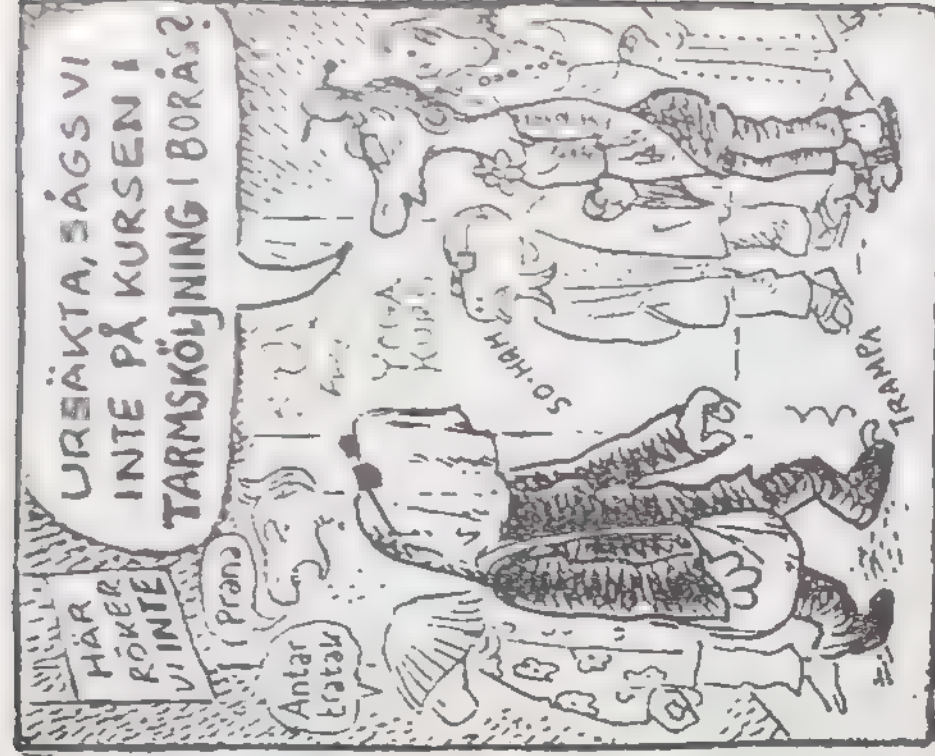 URSÄKTA, SÅGS VI
INTE PÅ KURSEN I
TARMSKÖLJNING I BORÅS?
HÄR
RÖKER
VI INTE
Prana
Antar
tratak
YOGA
SO-HAM
TRAMPA